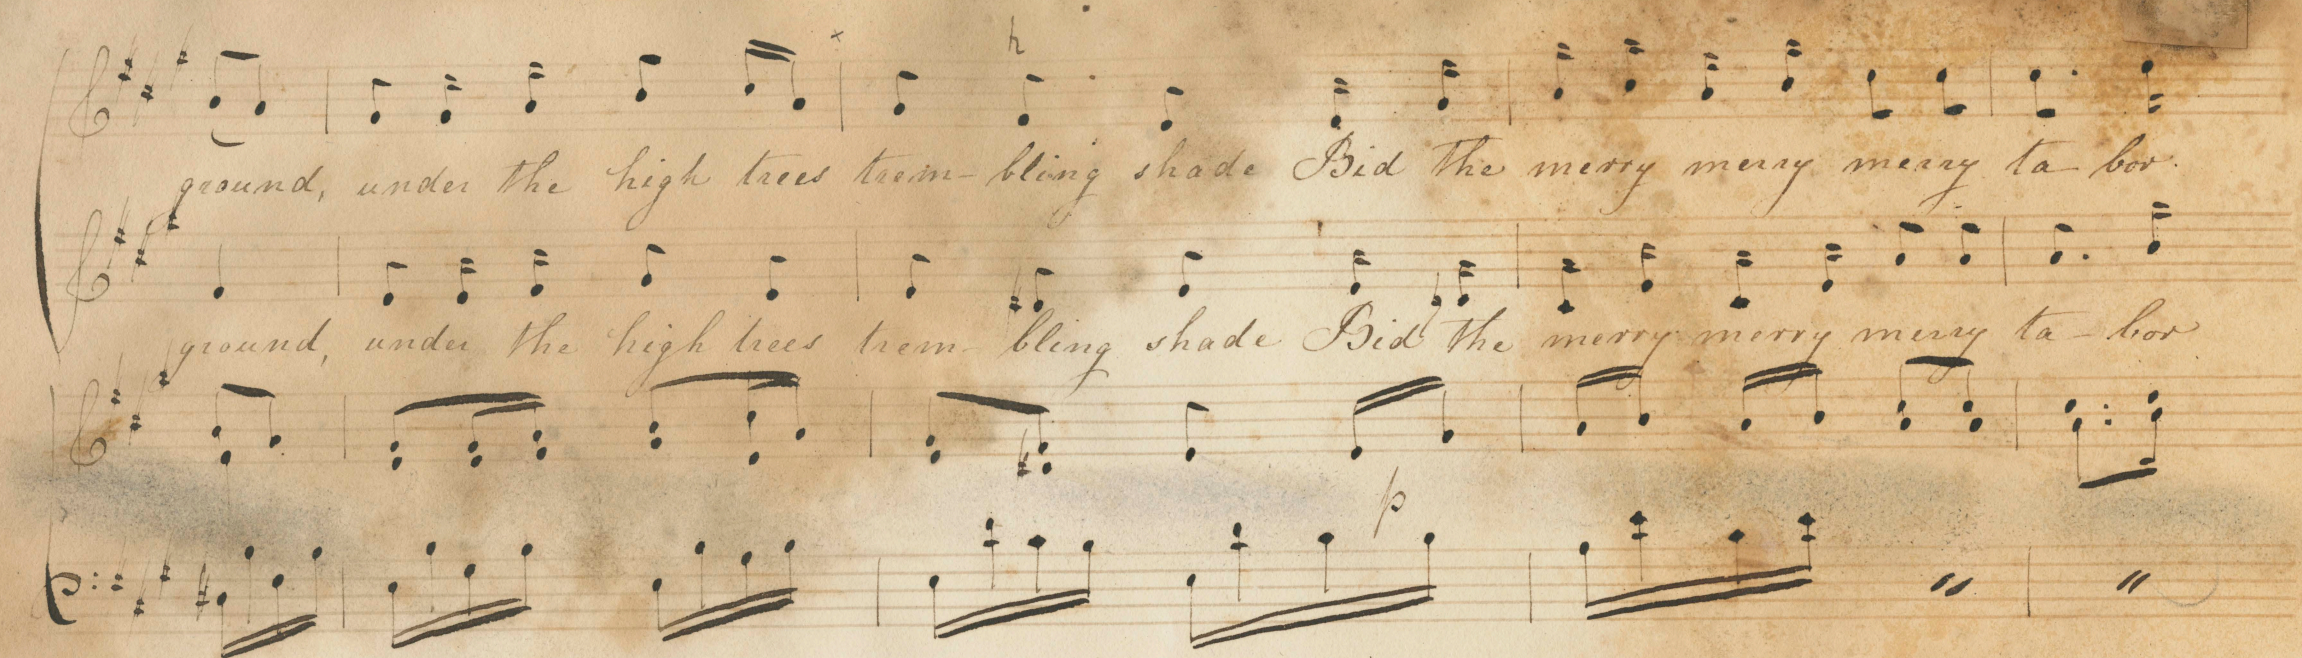 h
ground, under the high trees trem- bling shade Bid the merry merry merry ta- bor.
ground, under the high trees trem- bling shade Bid the merry merry merry ta- bor
p